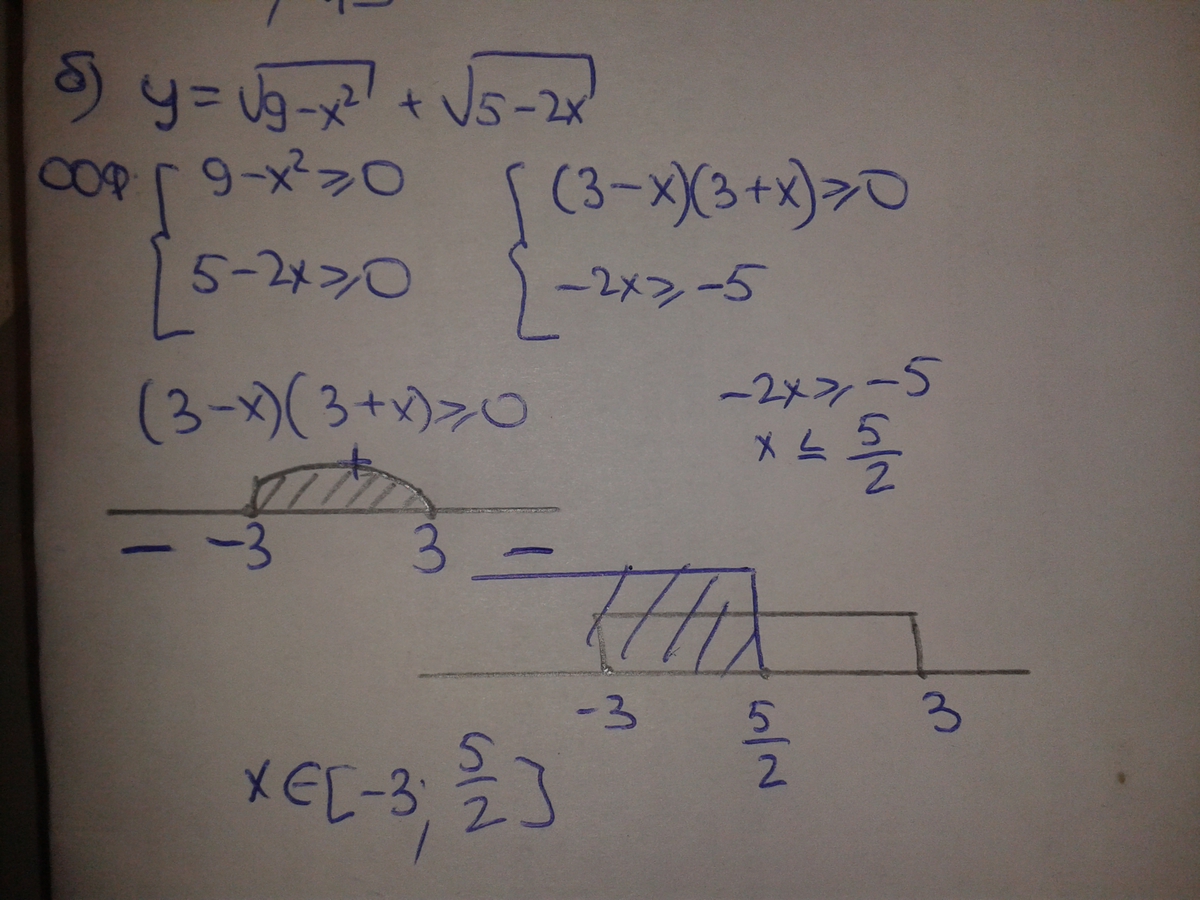 б) y = √9-x² + √5-2x
ООФ: { 9-x² ⩾ 0 { (3-x)(3+x) ⩾ 0
5-2x ⩾ 0 -2x ⩾ -5
(3-x)(3+x) ⩾ 0 -2x ⩾ -5
x ≤ 5/2
+
- -3 3 -
-3 5/2 3
x ∈ [-3; 5/2]